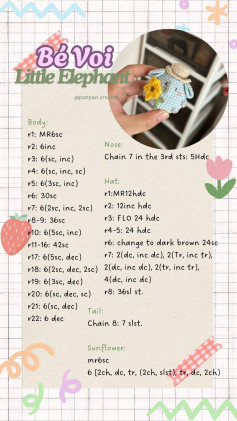 Bé Voi
Little Elephant
Body:
r1: MR6sc
r2: 6inc
r3: 6(sc, inc)
r4: 6(sc, inc, sc)
r5: 6(3sc, inc)
r6: 30sc
r7: 6(2sc, inc, 2sc)
r8-9: 36sc
r10: 6(5sc, inc)
r11-16: 42sc
r17: 6(5sc, dec)
r18: 6(2sc, dec, 2sc)
r19: 6(3sc, dec)
r20: 6(sc, dec, sc)
r21: 6(sc, dec)
r22: 6 dec
Nose:
Chain 7 in the 3rd sts: 5Hdc
Hat:
r1:MR12hdc
r2: 12inc hdc
r3: FLO 24 hdc
r4-5: 24 hdc
r6: change to dark brown 24sc
r7: 2(dc, inc dc), 2(Tr, inc tr),
2(dc, inc dc), 2(tr, inc tr),
4(dc, inc dc)
r8: 36sl st.
Tail:
Chain 8: 7 slst.
Sunflower:
mr6sc
6 [2ch, dc, tr, (2ch, slst), tr, dc, 2ch)